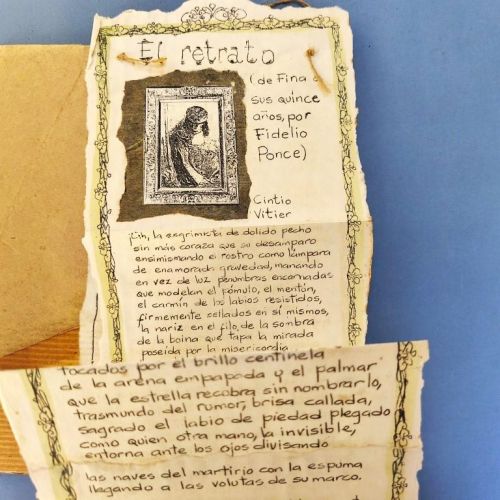 El retrato
(de Fina a
sus quince
años, por
Fidelio
Ponce)
Cintio
Vitier
¡Oh, la esgrimista de dolido pecho
sin más coraza que su desamparo
ensimismando el rostro como lámpara
de enamorada gravedad, manando
en vez de luz penumbras encarnadas
que modelan el pómulo, el mentón,
el carmín de los labios resistidos,
firmemente sellados en sí mismos,
la nariz en el filo de la sombra
de la boina que tapa la mirada
poseída por la misericordia
tocados por el brillo centinela
de la arena empapada y el palmar
que la estrella recobra sin nombrarlo,
trasmundo del rumor, brisa callada,
sagrado el labio de piedad plegado
como quien otra mano, la invisible,
entorna ante los ojos divisando
las naves del martirio con la espuma
llegando a las volutas de su marco.